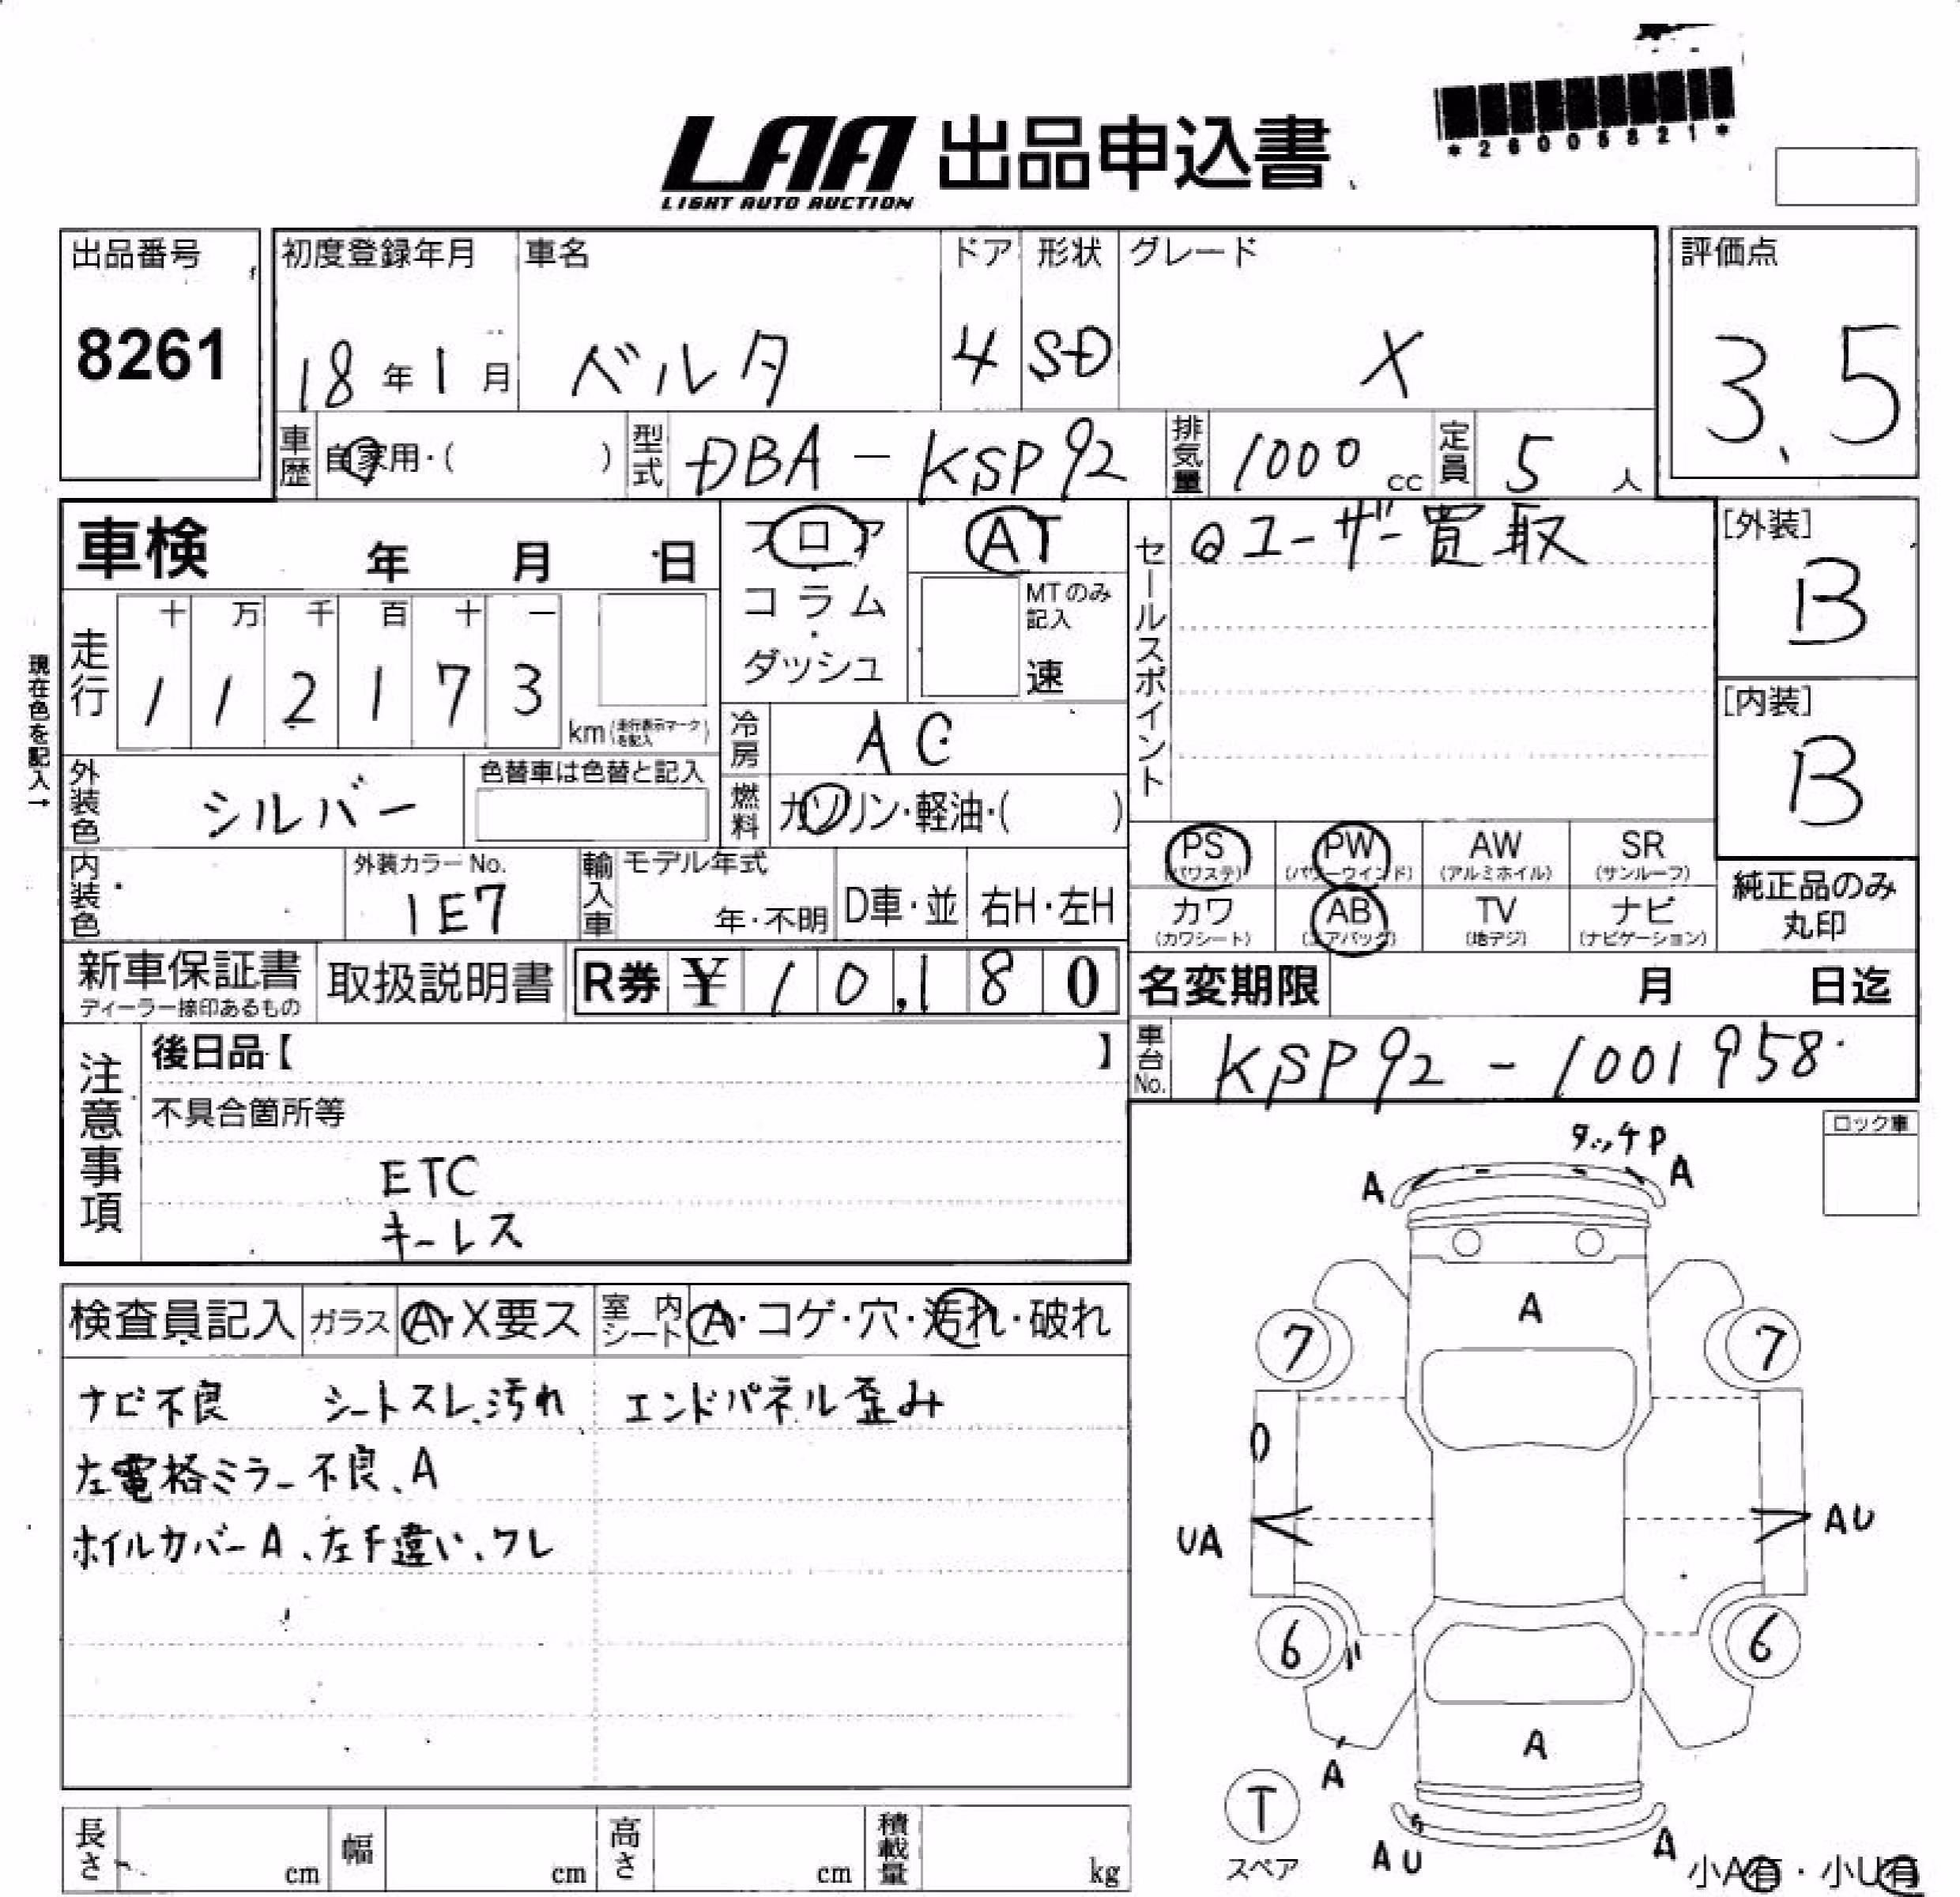 *26005821*
LAA 出品申込書
LIGHT AUTO AUCTION
出品番号
8261
初度登録年月
18年1月
車名
ベルタ
ドア
4
形状
SD
グレード
X
評価点
3.5
車歴
自家用・( )
型式
DBA-KSP92
排気量
1000cc
定員
5人
車検 年 月 日
フロア
・
コラム
・
ダッシュ
AT
MTのみ
記入
速
セールスポイント
ユーザー買取
[外装]
B
[内装]
B
現在色を記入→
走行
十 万 千 百 十 一
1 1 2 1 7 3
km(走行表示マークを記入)
冷房
AC
外装色
シルバー
色替車は色替と記入
燃料
ガソリン・軽油・( )
内装色
外装カラーNo.
1E7
輸入車
モデル年式
年・不明
D車・並
右H・左H
PS
(パワステ)
PW
(パワーウインド)
AW
(アルミホイル)
SR
(サンルーフ)
カワ
(カワシート)
AB
(エアバッグ)
TV
(地デジ)
ナビ
(ナビゲーション)
純正品のみ
丸印
新車保証書
ディーラー捺印あるもの
取扱説明書
R券 ¥10,180
名変期限 月 日迄
車台No.
KSP92-1001958
注意事項
後日品【 】
不具合箇所等
ETC
キーレス
ロック車
検査員記入
ガラス
A・X要ス
室内シート
A・コゲ・穴・汚れ・破れ
ナビ不良 シートスレ、汚れ エンドパネル歪み
左電格ミラー不良、A
ホイルカバーA、左F違い、ワレ
タッチP
A
A
A
7
7
UA
AU
6
6
A
A
T
スペア
AU
A
小A有・小U有
長さ cm
幅 cm
高さ cm
積載量 kg